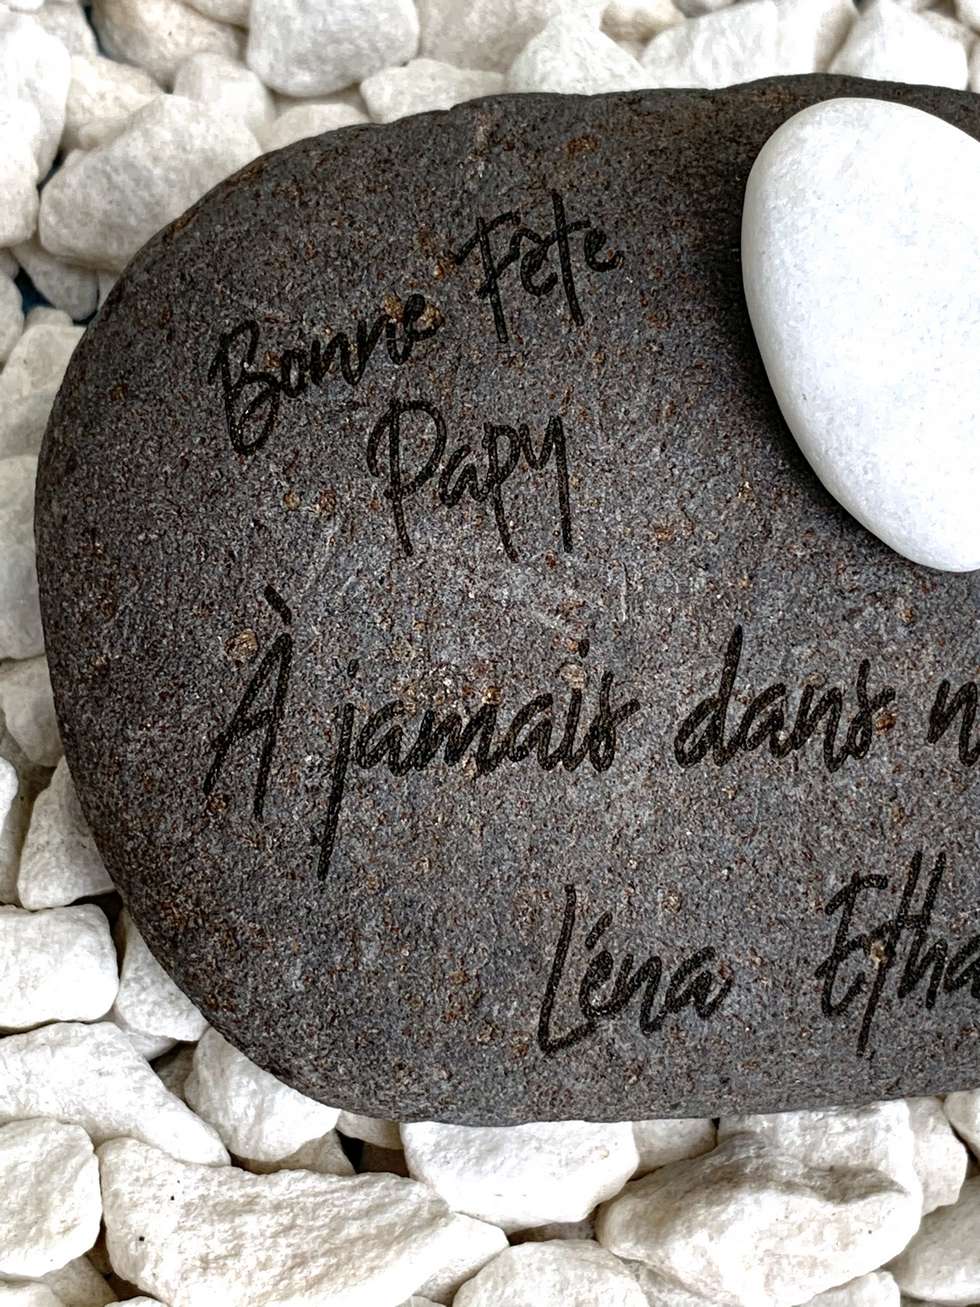 Bonne Fête
Papy
À jamais dans
Léna